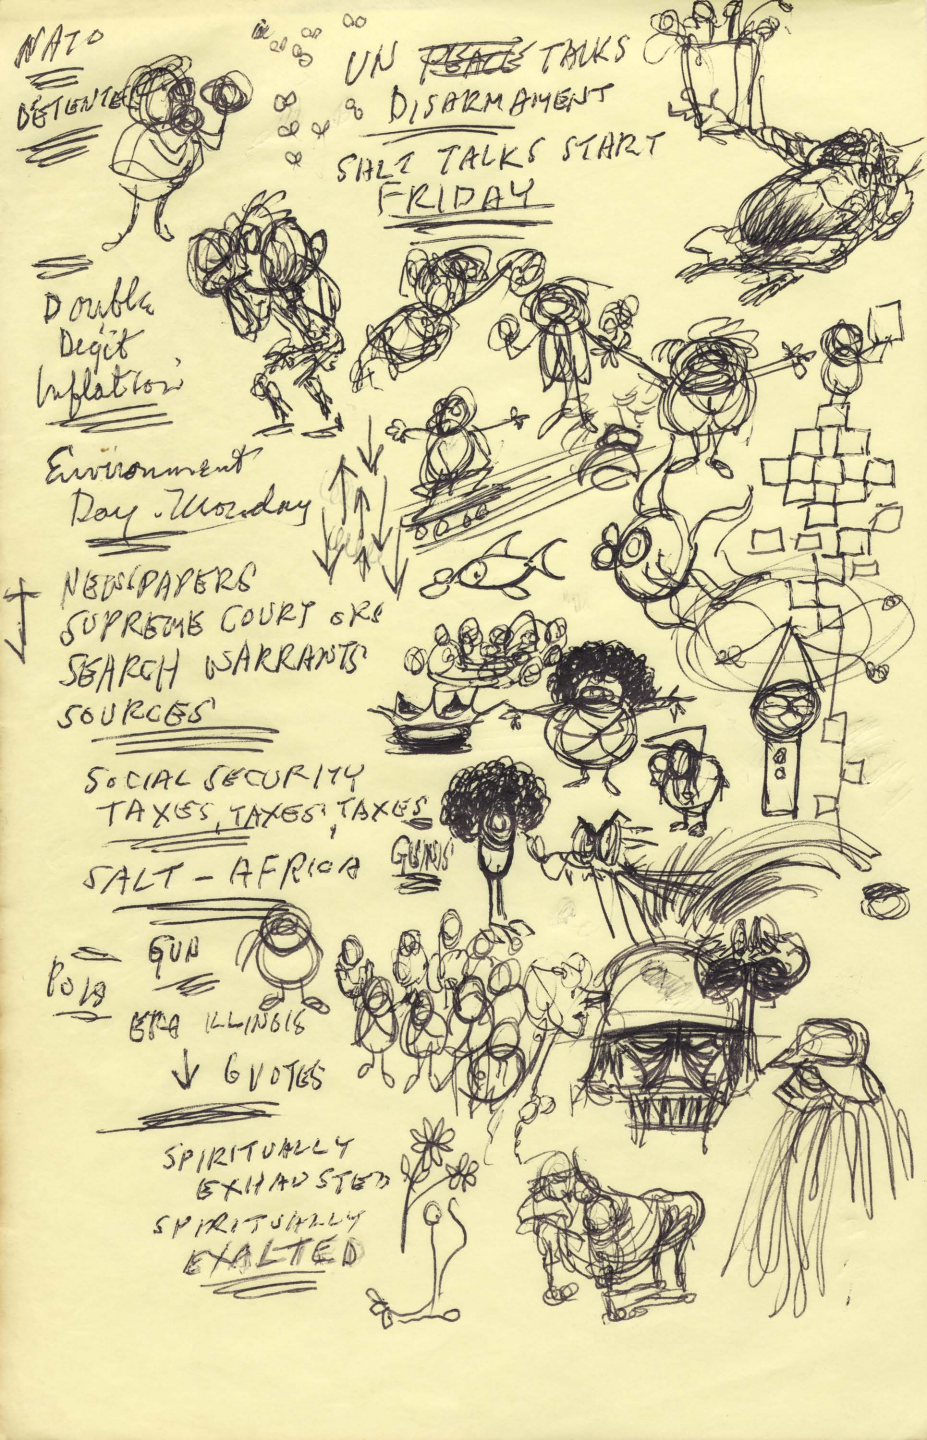 NATO
DÉTENTE
UN PEACE TALKS
DISARMAMENT
SALT TALKS START
FRIDAY
Double
Digit
Inflation
Environment
Day. Monday
NEWSPAPERS
SUPREME COURT
SEARCH WARRANTS
SOURCES
SOCIAL SECURITY
TAXES, TAXES, TAXES
GUNS
SALT - AFRICA
GUN
ERA ILLINOIS
6 VOTES
SPIRITUALLY
EXHAUSTED
SPIRITUALLY
EXALTED